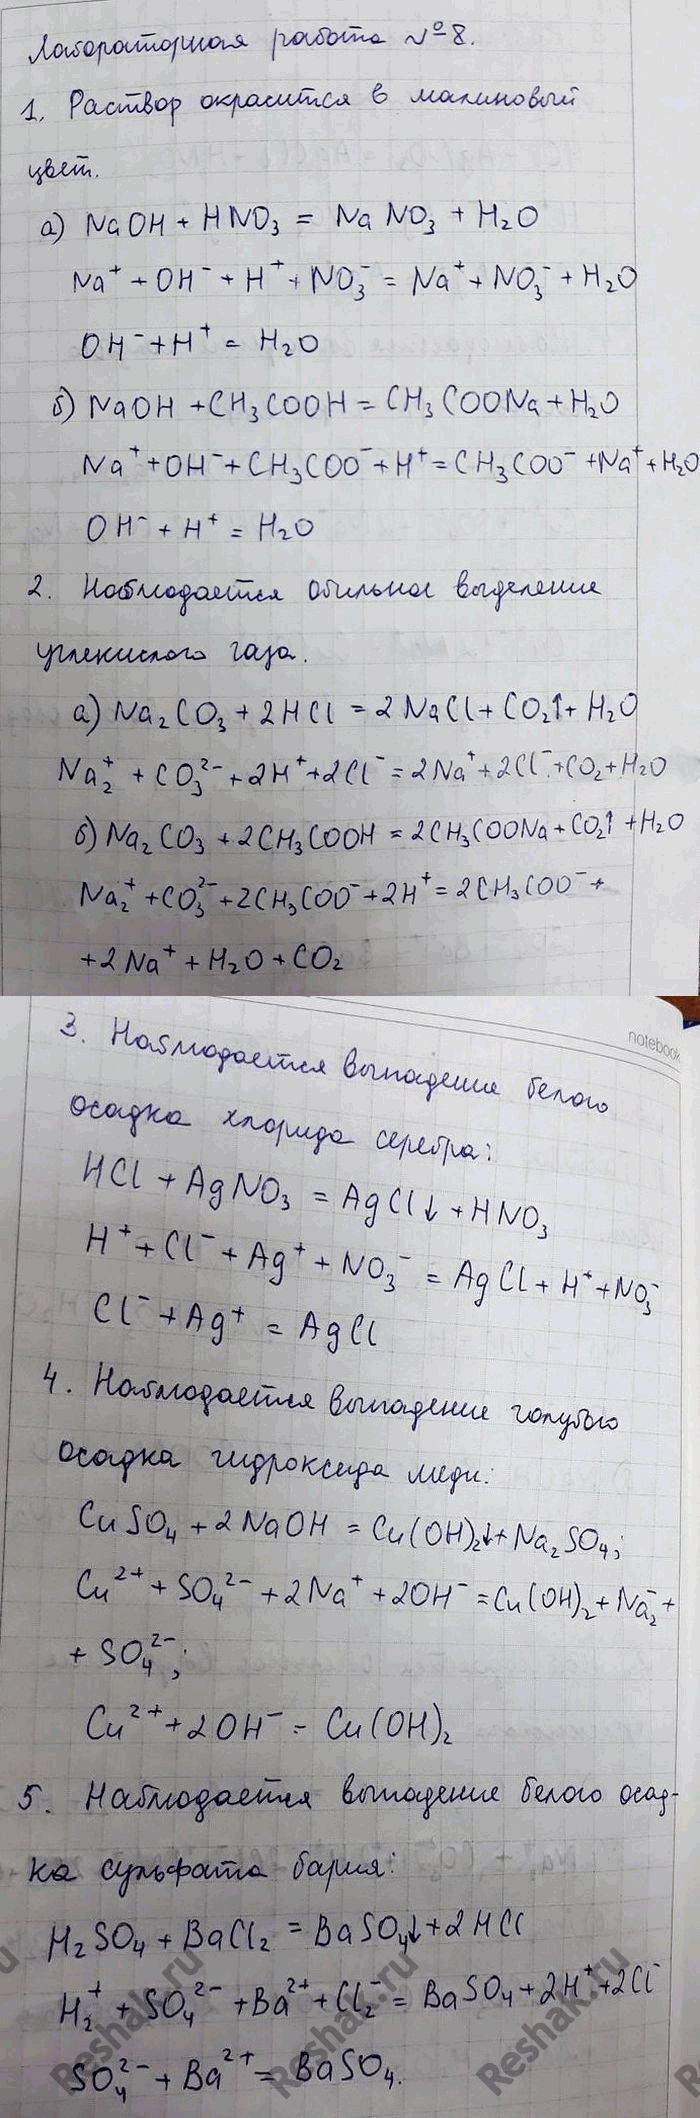 Лабораторная работа №8.
1. Раствор окрасится в малиновый
цвет.
а) NaOH + HNO₃ = NaNO₃ + H₂O
Na⁺ + OH⁻ + H⁺ + NO₃⁻ = Na⁺ + NO₃⁻ + H₂O
OH⁻ + H⁺ = H₂O
б) NaOH + CH₃COOH = CH₃COONa + H₂O
Na⁺ + OH⁻ + CH₃COO⁻ + H⁺ = CH₃COO⁻ + Na⁺ + H₂O
OH⁻ + H⁺ = H₂O
2. Наблюдается обильное выделение
углекислого газа.
а) Na₂CO₃ + 2HCl = 2NaCl + CO₂↑ + H₂O
Na₂⁺ + CO₃²⁻ + 2H⁺ + 2Cl⁻ = 2Na⁺ + 2Cl⁻ + CO₂ + H₂O
б) Na₂CO₃ + 2CH₃COOH = 2CH₃COONa + CO₂↑ + H₂O
Na₂⁺ + CO₃²⁻ + 2CH₃COO⁻ + 2H⁺ = 2CH₃COO⁻ +
+ 2Na⁺ + H₂O + CO₂
notebook
3. Наблюдается выпадение белого
осадка хлорида серебра:
HCl + AgNO₃ = AgCl↓ + HNO₃
H⁺ + Cl⁻ + Ag⁺ + NO₃⁻ = AgCl + H⁺ + NO₃⁻
Cl⁻ + Ag⁺ = AgCl
4. Наблюдается выпадение голубого
осадка гидроксида меди:
CuSO₄ + 2NaOH = Cu(OH)₂↓ + Na₂SO₄;
Cu²⁺ + SO₄²⁻ + 2Na⁺ + 2OH⁻ = Cu(OH)₂ + Na₂⁻ +
+ SO₄²⁻;
Cu²⁺ + 2OH⁻ = Cu(OH)₂
5. Наблюдается выпадение белого осад-
ка сульфата бария:
H₂SO₄ + BaCl₂ = BaSO₄↓ + 2HCl
H₂⁺ + SO₄²⁻ + Ba²⁺ + Cl₂⁻ = BaSO₄ + 2H⁺ + 2Cl⁻
SO₄²⁻ + Ba²⁺ = BaSO₄.
Reshak.ru
Reshak.ru
Reshak.ru